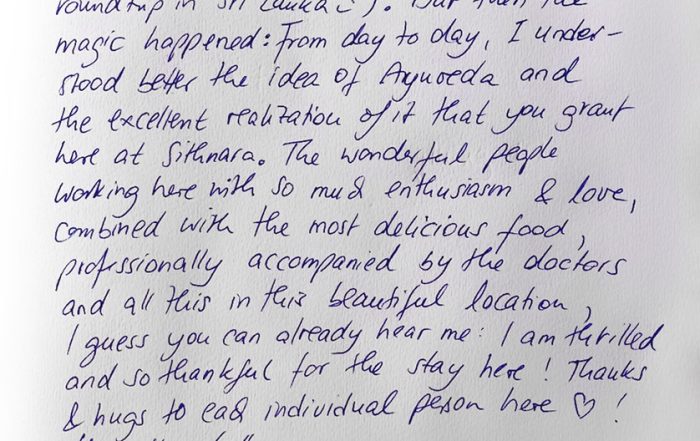 roundtrip in Sri Lanka
magic happened: From day to day, I under-
stood better the idea of Ayurveda and
the excellent realization of it that you grant
here at Sithnara. The wonderful people
working here with so much enthusiasm & love,
combined with the most delicious food,
professionally accompanied by the doctors
and all this in this beautiful location,
I guess you can already hear me: I am thrilled
and so thankful for the stay here! Thanks
& hugs to each individual person here ♡!